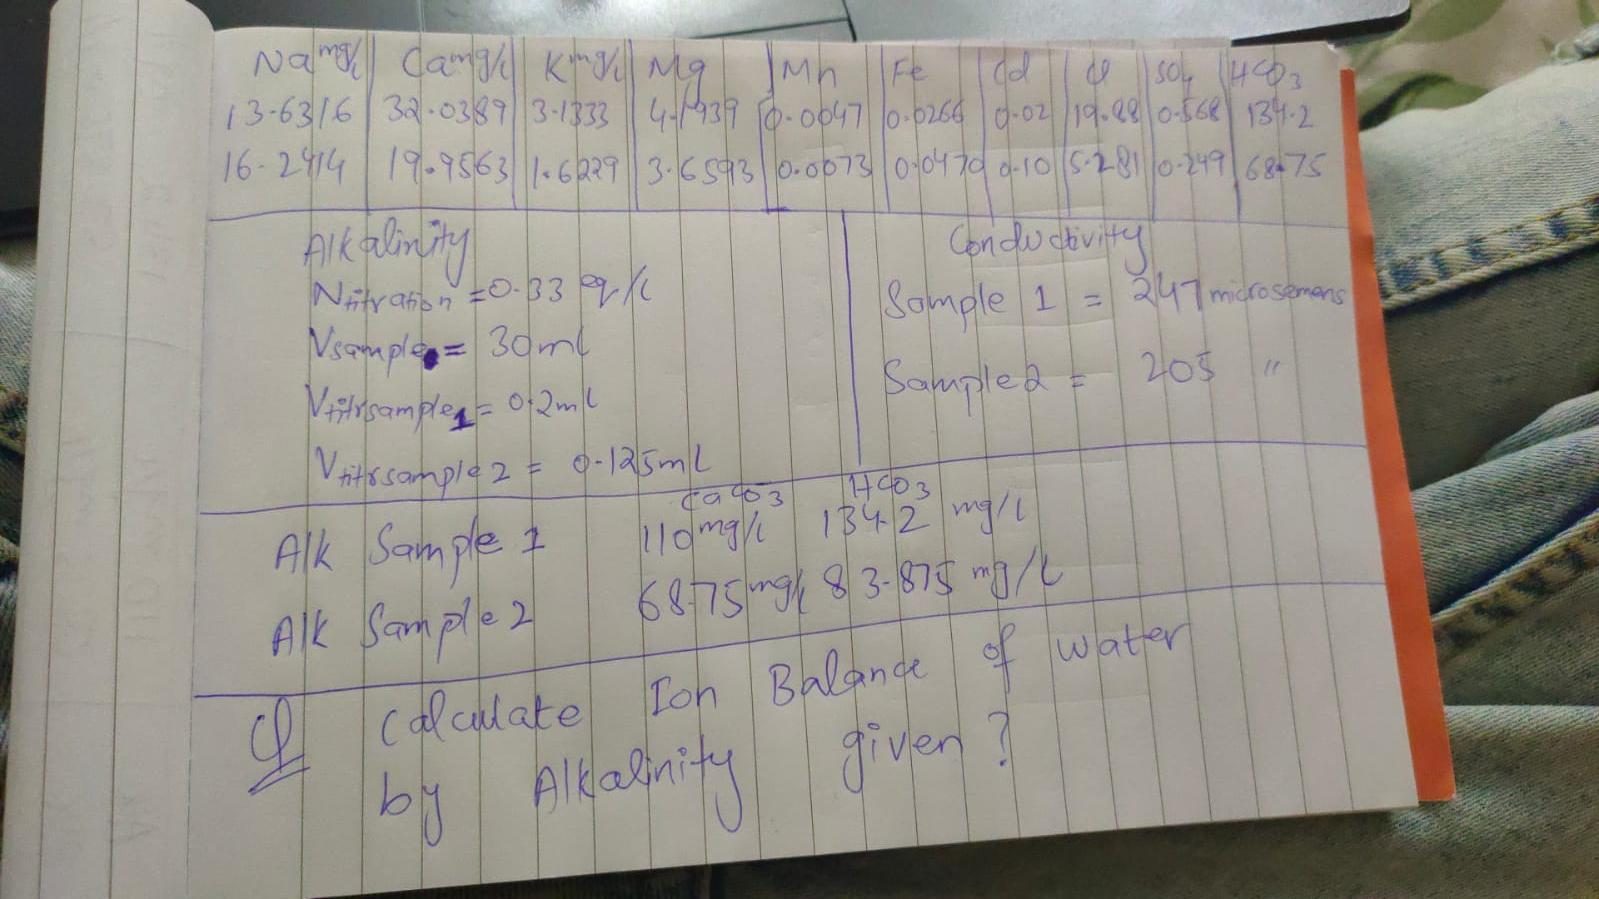 Na mg/L Ca mg/L K mg/L Mg Mn Fe Cd Cl SO4 HCO3
13.6316 32.0389 3.1333 4.1939 0.0047 0.0266 0.02 19.88 0.568 134.2
16.2414 19.9563 1.6229 3.6593 0.0073 0.0470 0.10 5.281 0.249 68.75
Alkalinity
Ntitration = 0.33 eq/L
Vsample = 30ml
Vtitrsample1 = 0.2ml
Vtitrsample2 = 0.125ml
Conductivity
Sample 1 = 247 microsemens
Sample 2 = 205 "
CaCO3 HCO3
Alk Sample 1 110 mg/L 134.2 mg/L
Alk Sample 2 68.75 mg/L 83.875 mg/L
Q Calculate Ion Balance of water
by Alkalinity given?